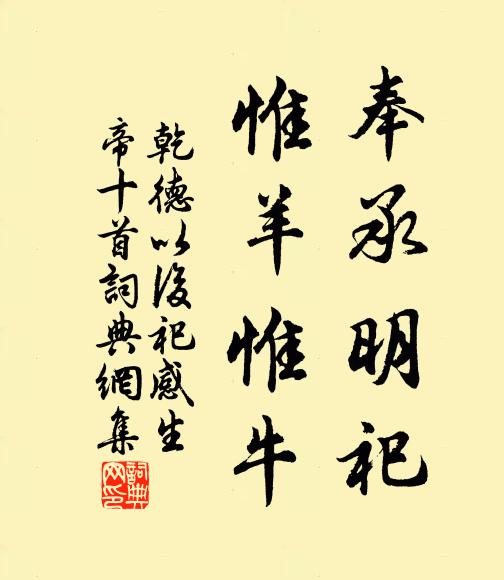 奉承明祀
惟羊惟牛
乾德以後祀感生
帝十首詞典網集
詞典网印